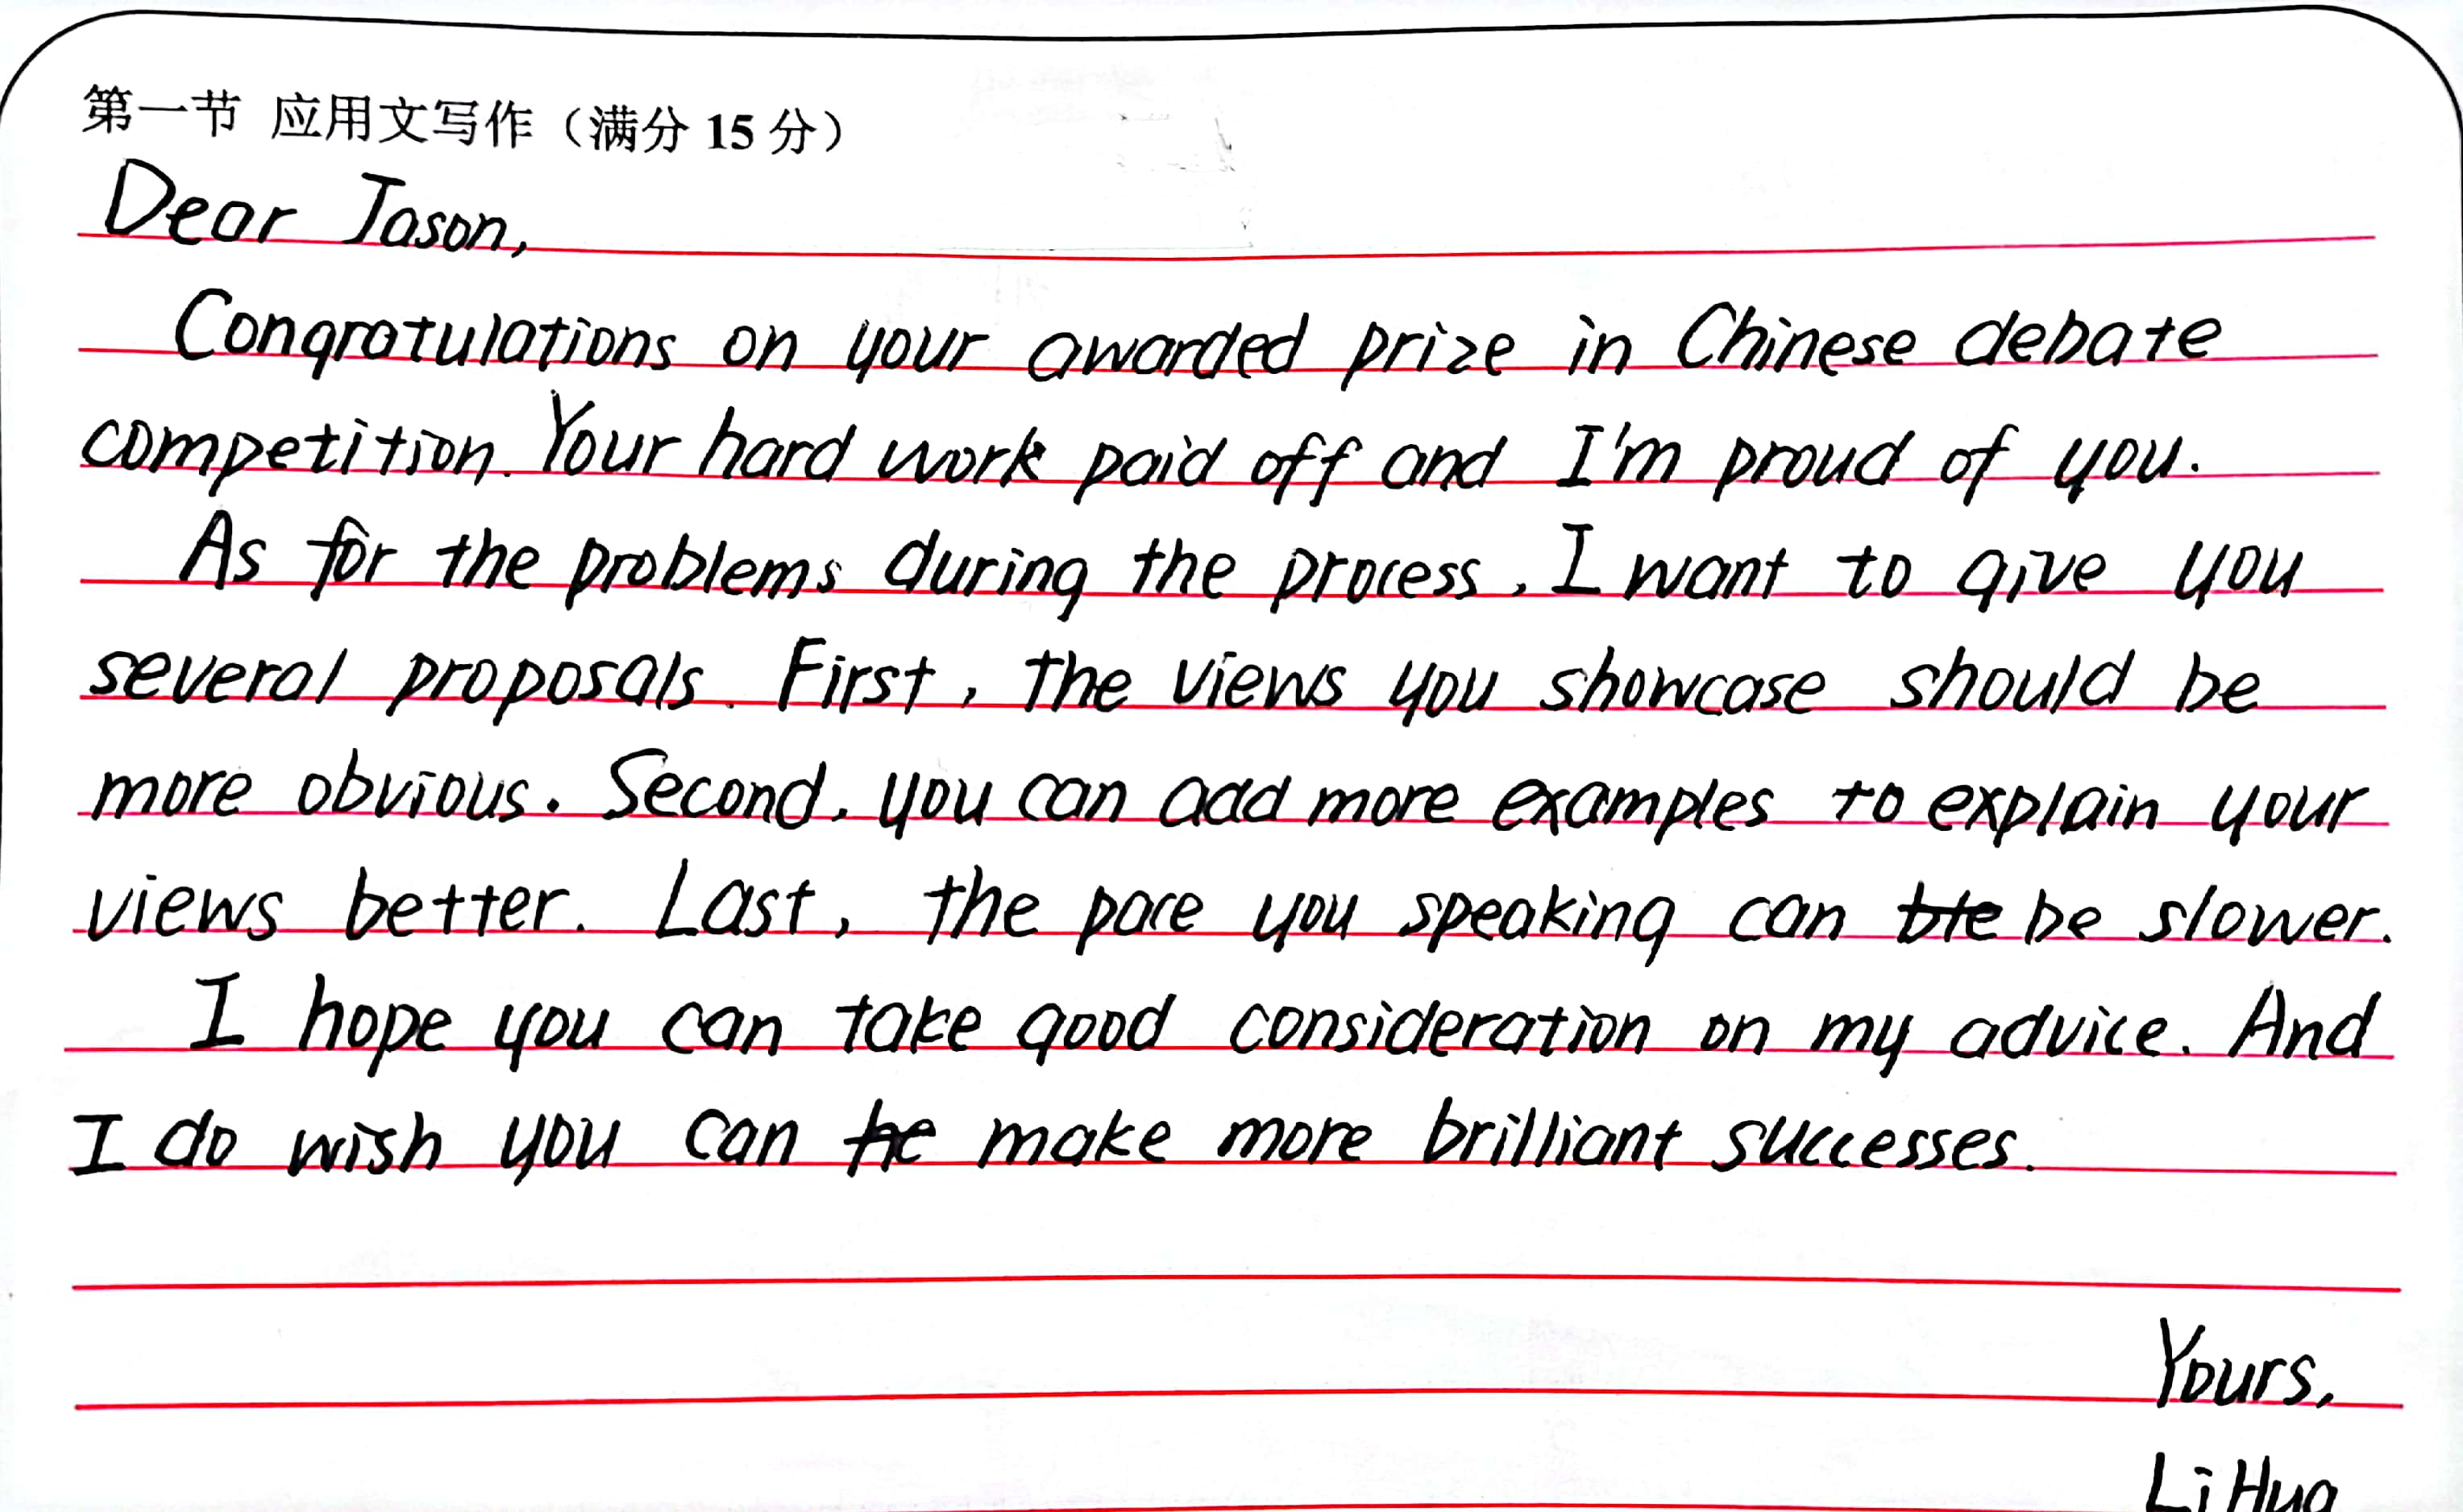 第一节 应用文写作（满分 15 分）
Dear Jason,
Congratulations on your awarded prize in Chinese debate
competition. Your hard work paid off and I'm proud of you.
As for the problems during the process, I want to give you
several proposals. First, the views you showcase should be
more obvious. Second, you can add more examples to explain your
views better. Last, the pace you speaking can be slower.
I hope you can take good consideration on my advice. And
I do wish you can make more brilliant successes.
Yours,
Li Hua